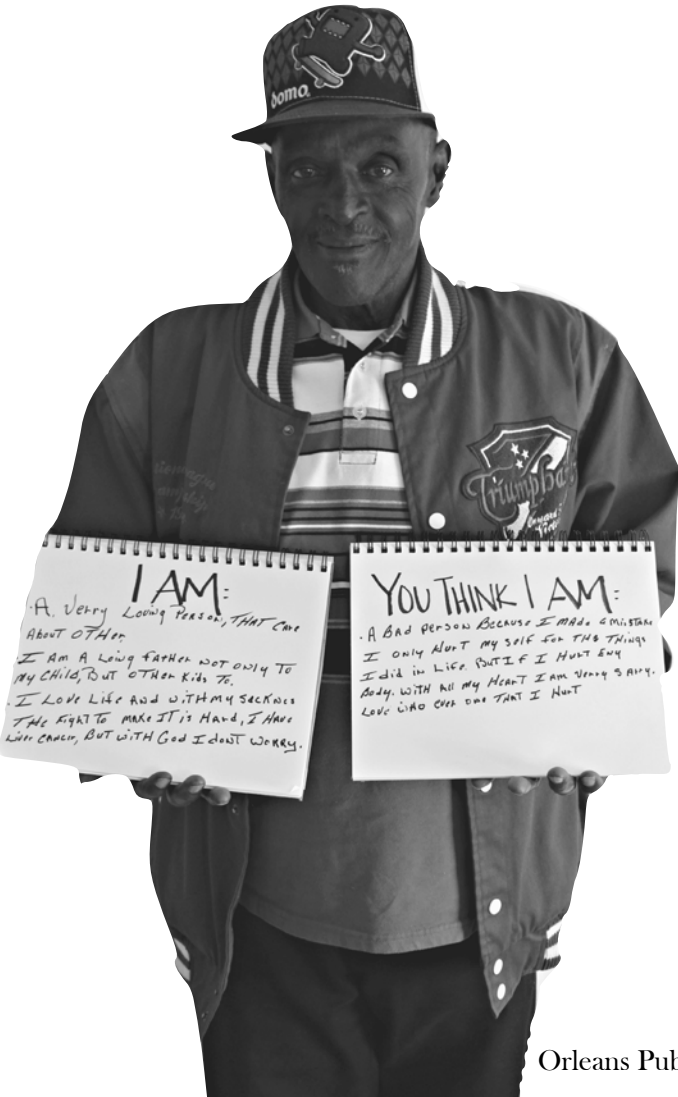 Domo.
Triumphant
I AM:
· A. Verry Loving Person, THAT Care
About OTHer.
· I AM A Loving Father NOT ONLY TO
My CHILD, BUT OTHer Kids To.
· I Love Life AND wiTH My SACKNes
THe Fight To make IT is HArd, I HAve
Liver CANcer, BUT wiTH God I dont worry.
YOU THINK I AM:
· A BAd person BecAuse I mAde a misTake
I only HurT my self for THe THings
I did in Life. BuT If I HurT Eny
Body. wiTH All my HearT I Am verry SArry.
Love wHO ever one THAT I HurT
Orleans Pub